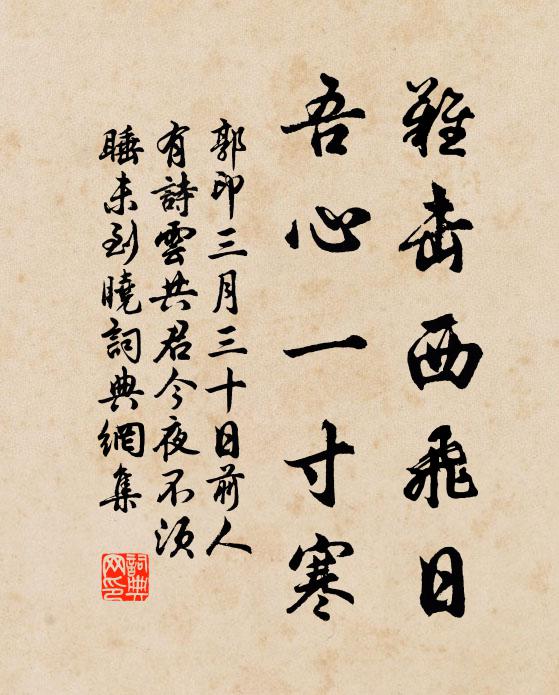 難击西飛日
吾心一寸寒
郭印三月三十日前人
有詩雲共君今夜不須
睡未到曉詞典網集
詞典
网印